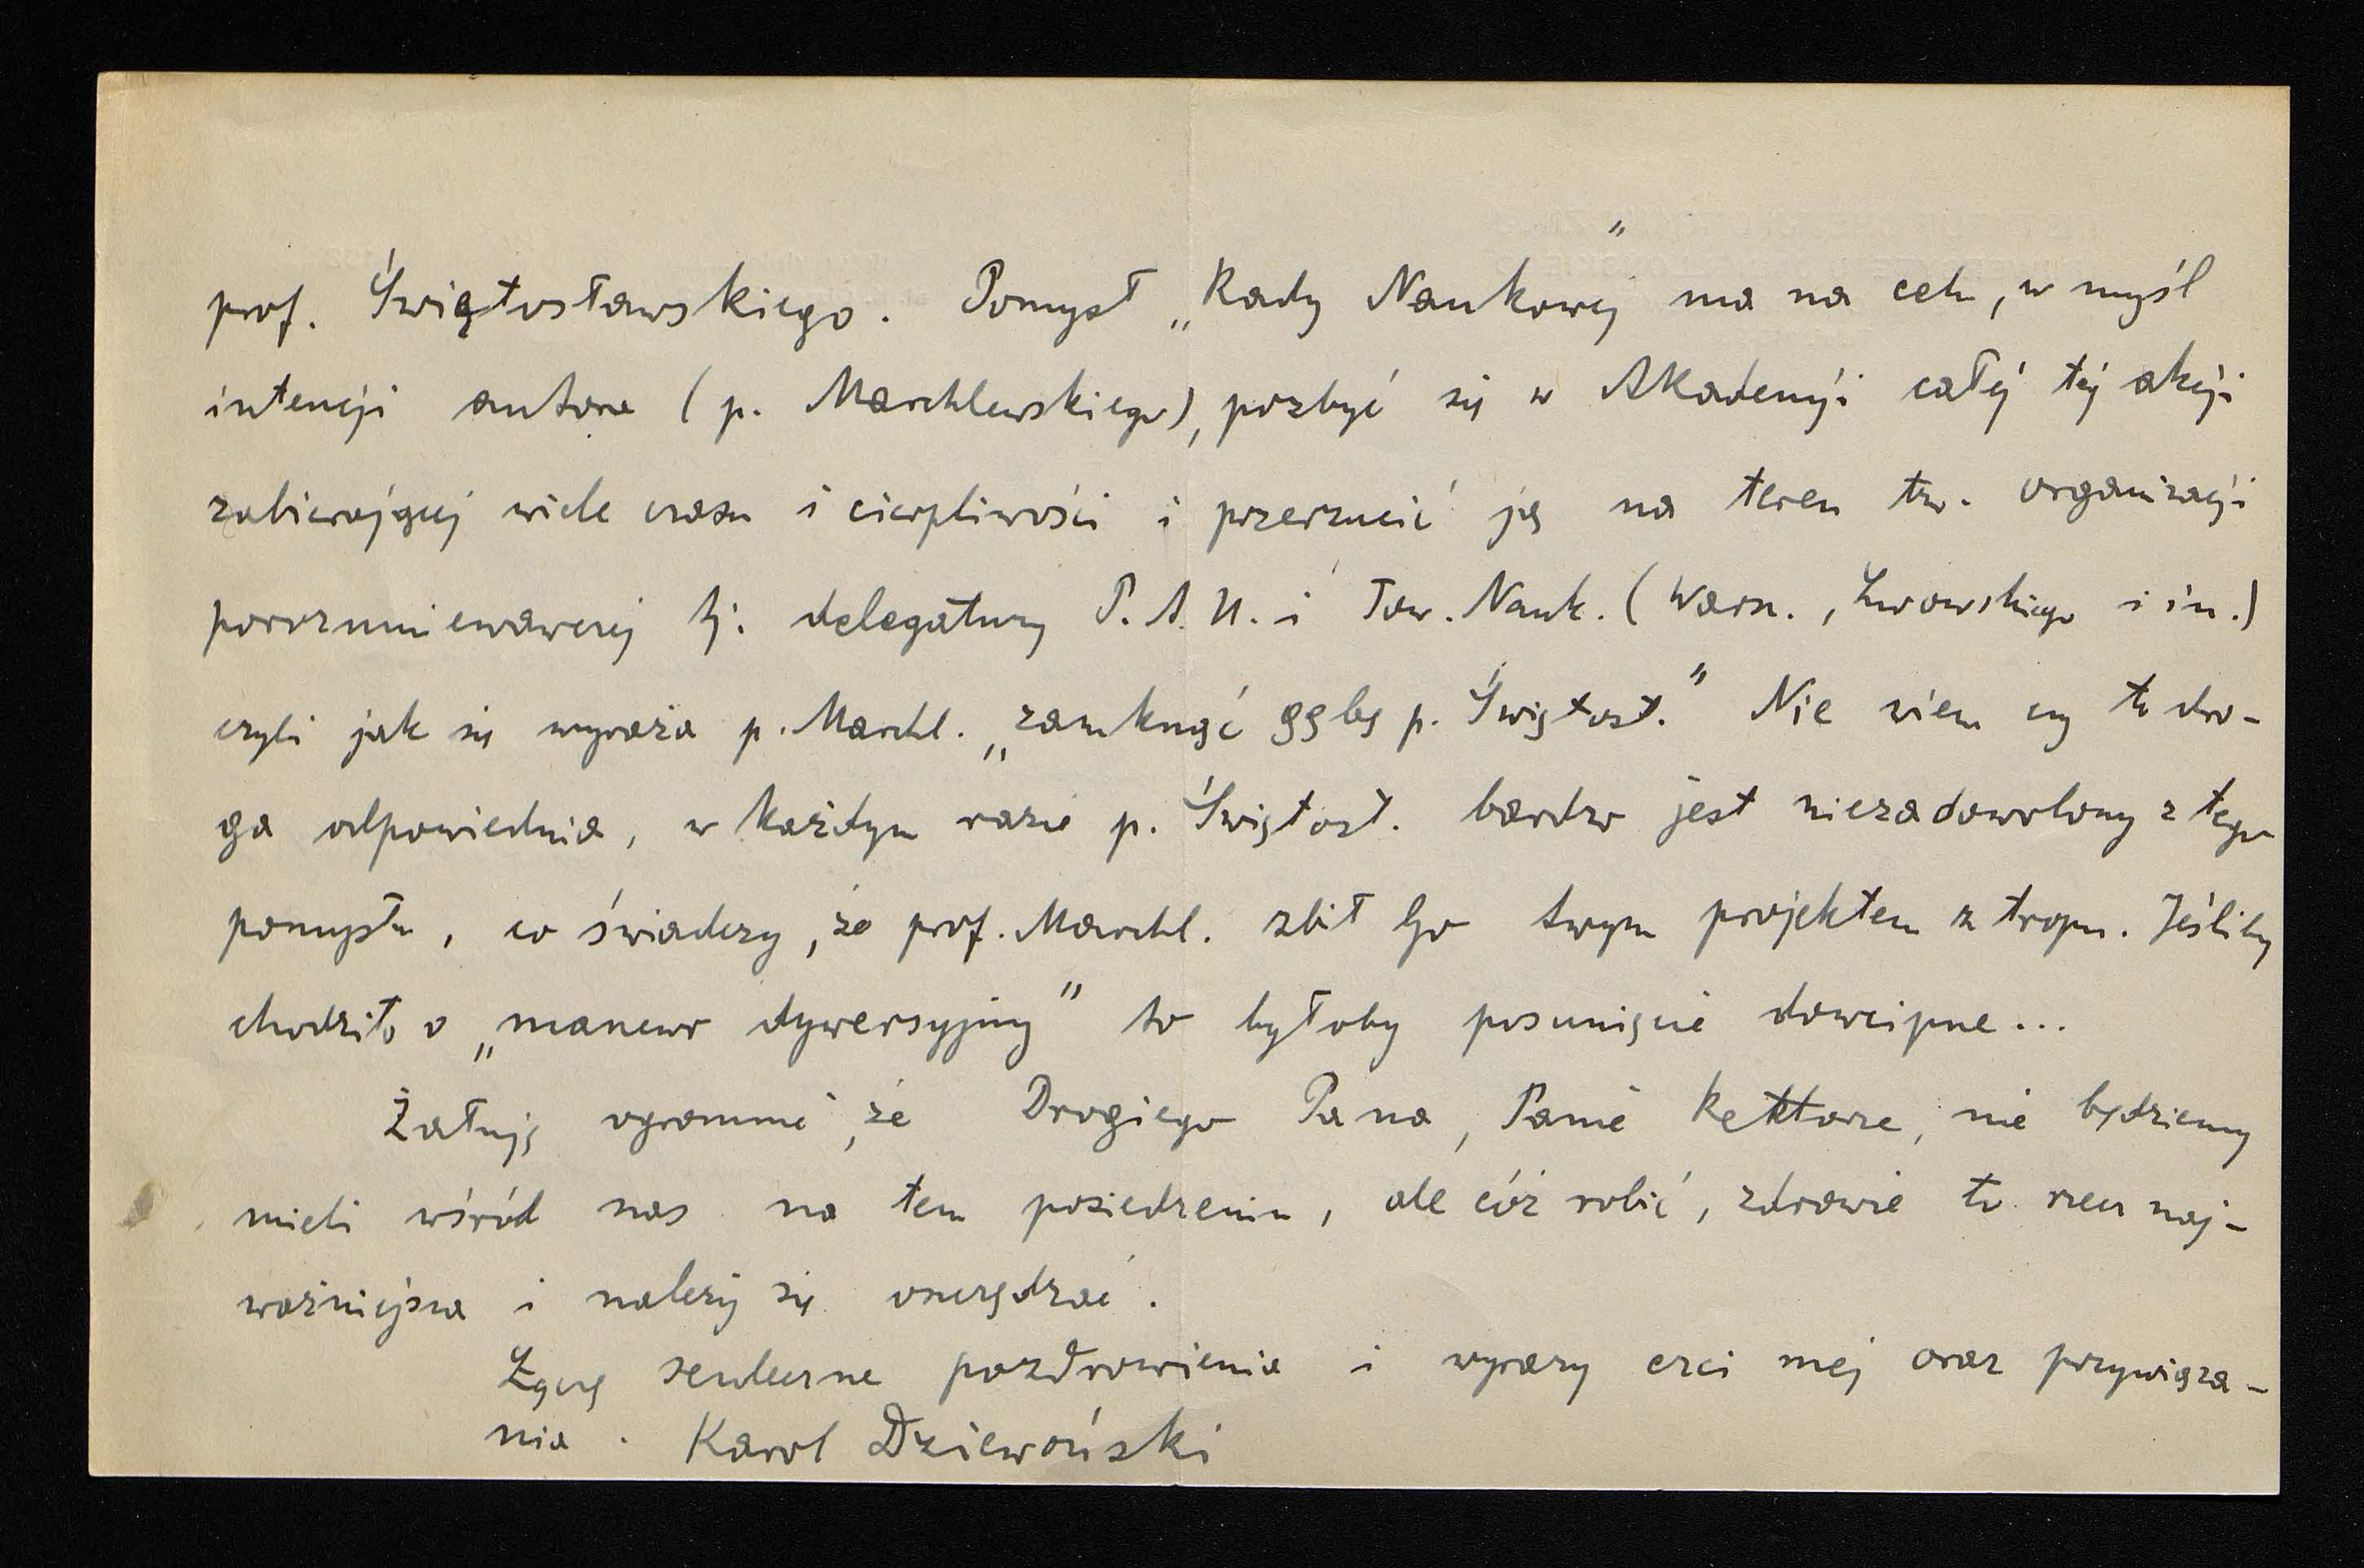 prof. Świętosławskiego. Pomysł „Rady Naukowej” ma na celu, w myśl
intencji autora (p. Marchlewskiego), pozbyć się w Akademji całej tej akcji
zabierającej wiele czasu i cierpliwości i przerzucić ją na teren tzw. organizacji
porozumiewawczej tj. delegatury P.A.U. i Tow. Nauk. (Warsz., Lwowskiego i in.)
czyli jak się wyraża p. Marchl. „zamknąć gębę p. Świętosł.” Nie wiem czy to dro-
ga odpowiednia, w każdym razie p. Świętosł. bardzo jest niezadowolony z tego
pomysłu, co świadczy, że prof. Marchl. zbił Go swym projektem z tropu. Jeśliby
chodziło o „manewr dywersyjny” to byłoby posunięcie dowcipne...
Żałuję ogromnie, że Drogiego Pana, Panie Rektorze, nie będziemy
mieli wśród nas na tem posiedzeniu, ale cóż robić, zdrowie to rzecz naj-
ważniejsza i należy się oszczędzać.
Łączę serdeczne pozdrowienia i wyrazy czci mej oraz przywiąza-
nia. Karol Dziewoński